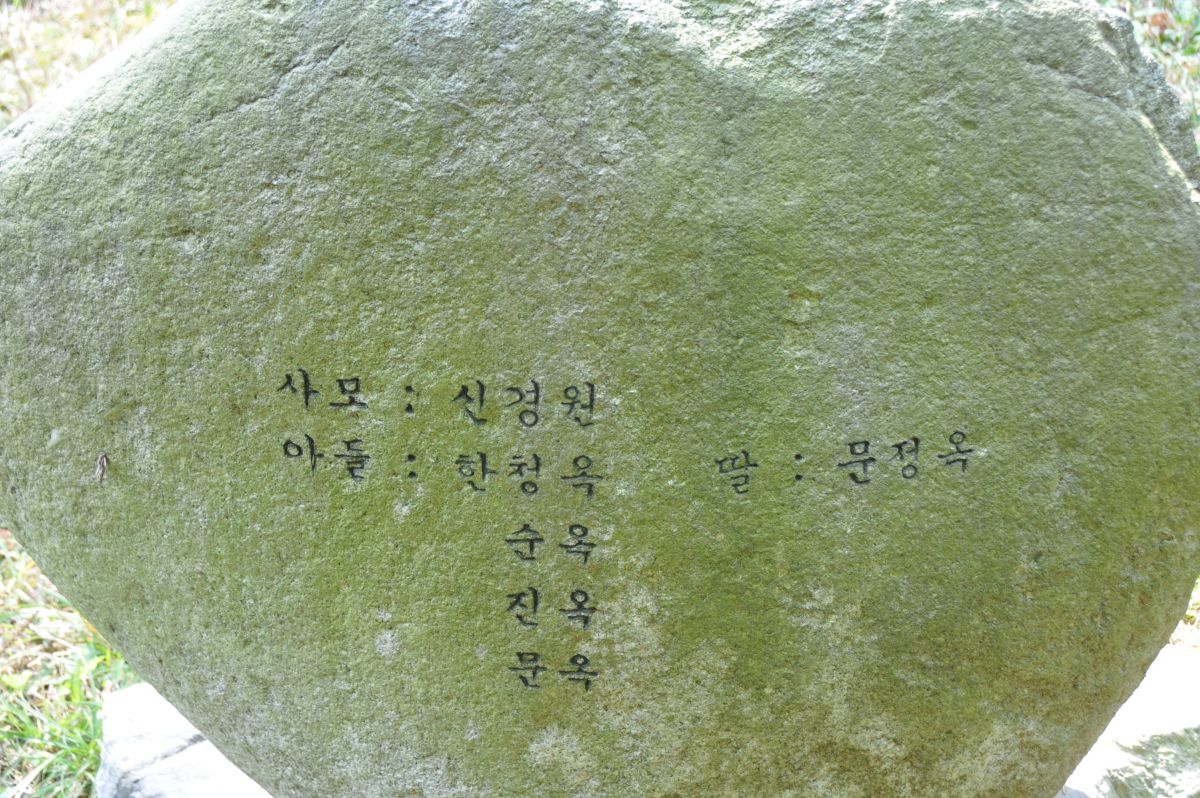 사모 : 신경원
아들 : 한청옥 딸 : 문정옥
순옥
진옥
문옥